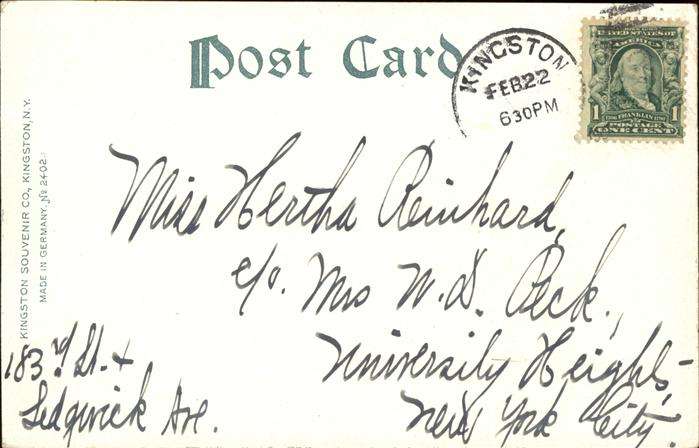 Post Card
KINGSTON
FEB 22
630PM
UNITED STATES OF
AMERICA
1 1
FRANKLIN
POSTAGE
ONE CENT
Miss Hertha Reinhard,
c/o. Mrs W. D. Peck.,
University Heights,
New York City.
183rd St. +
Sedgwick Ave.
KINGSTON SOUVENIR CO., KINGSTON, N.Y.
MADE IN GERMANY. No 2402.